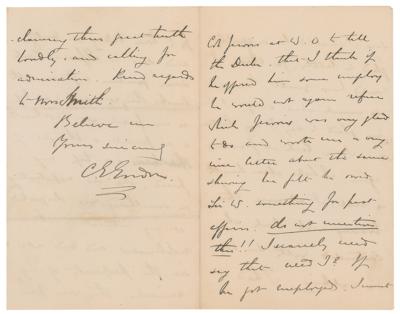 claiming this great truth
loudly, and calling for
admiration. Kind regards
to Mrs Smith
Believe me
Yours sincerely
C E Gordon
Col Jervois at W. O to tell
the Duke. that I think if
he offered him some employ
he would not again refuse
which Jervois was very glad
to do and wrote me a very
nice letter about the same
shewing he felt he owed
Sir W. something for past
affairs. do not mention
this!! I scarcely need
say that need I? If
he got employed I must